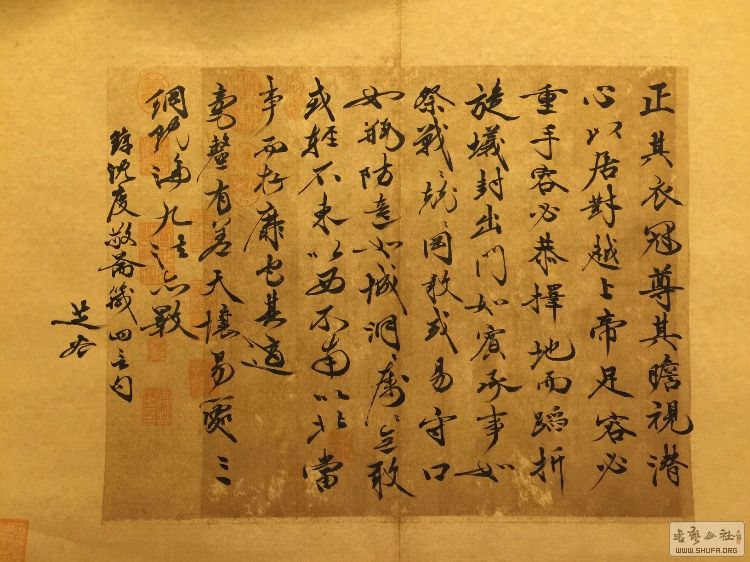 正其衣冠尊其瞻視潜
心以居對越上帝足容必
重手容必恭擇地而蹈折
旋蟻封出門如賓承事如
祭戰〻兢〻罔敢或易守口
如瓶防意如城洞〻屬〻罔敢
或輕不東以西不南以北當
事而存靡它其適
毫釐有差天壤易處三
綱既淪九法亦斁
錄沈度敬斋箴四言句
書藝公社
WWW.SHUFA.ORG